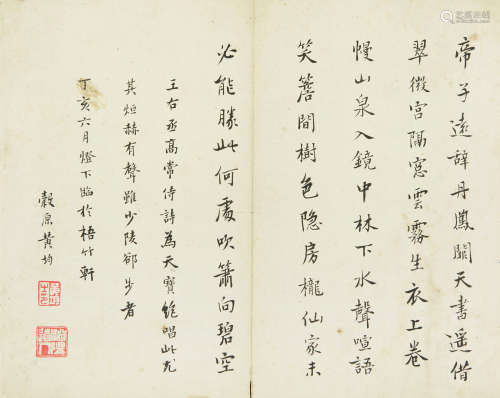 帝子遠辭丹鳳闕天書遥借
翠微宮隔窓雲霧生衣上卷
幔山泉入鏡中林下水聲喧語
笑簷間樹色隐房櫳仙家未
必能勝此何處吹簫向碧空
王右丞高常侍詩為天寶絶唱此尤
其烜赫有聲雖少陵卻步者
丁亥六月燈下臨於梧竹軒
穀原黄均